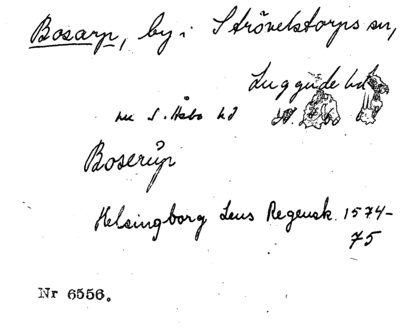 Bosarp, by i Strövelstorps sn,
Luggude hd
nu S. Åsbo hd
Boserŭp
Helsingborg Lens Regensk. 1574-
75
Nr 6556.